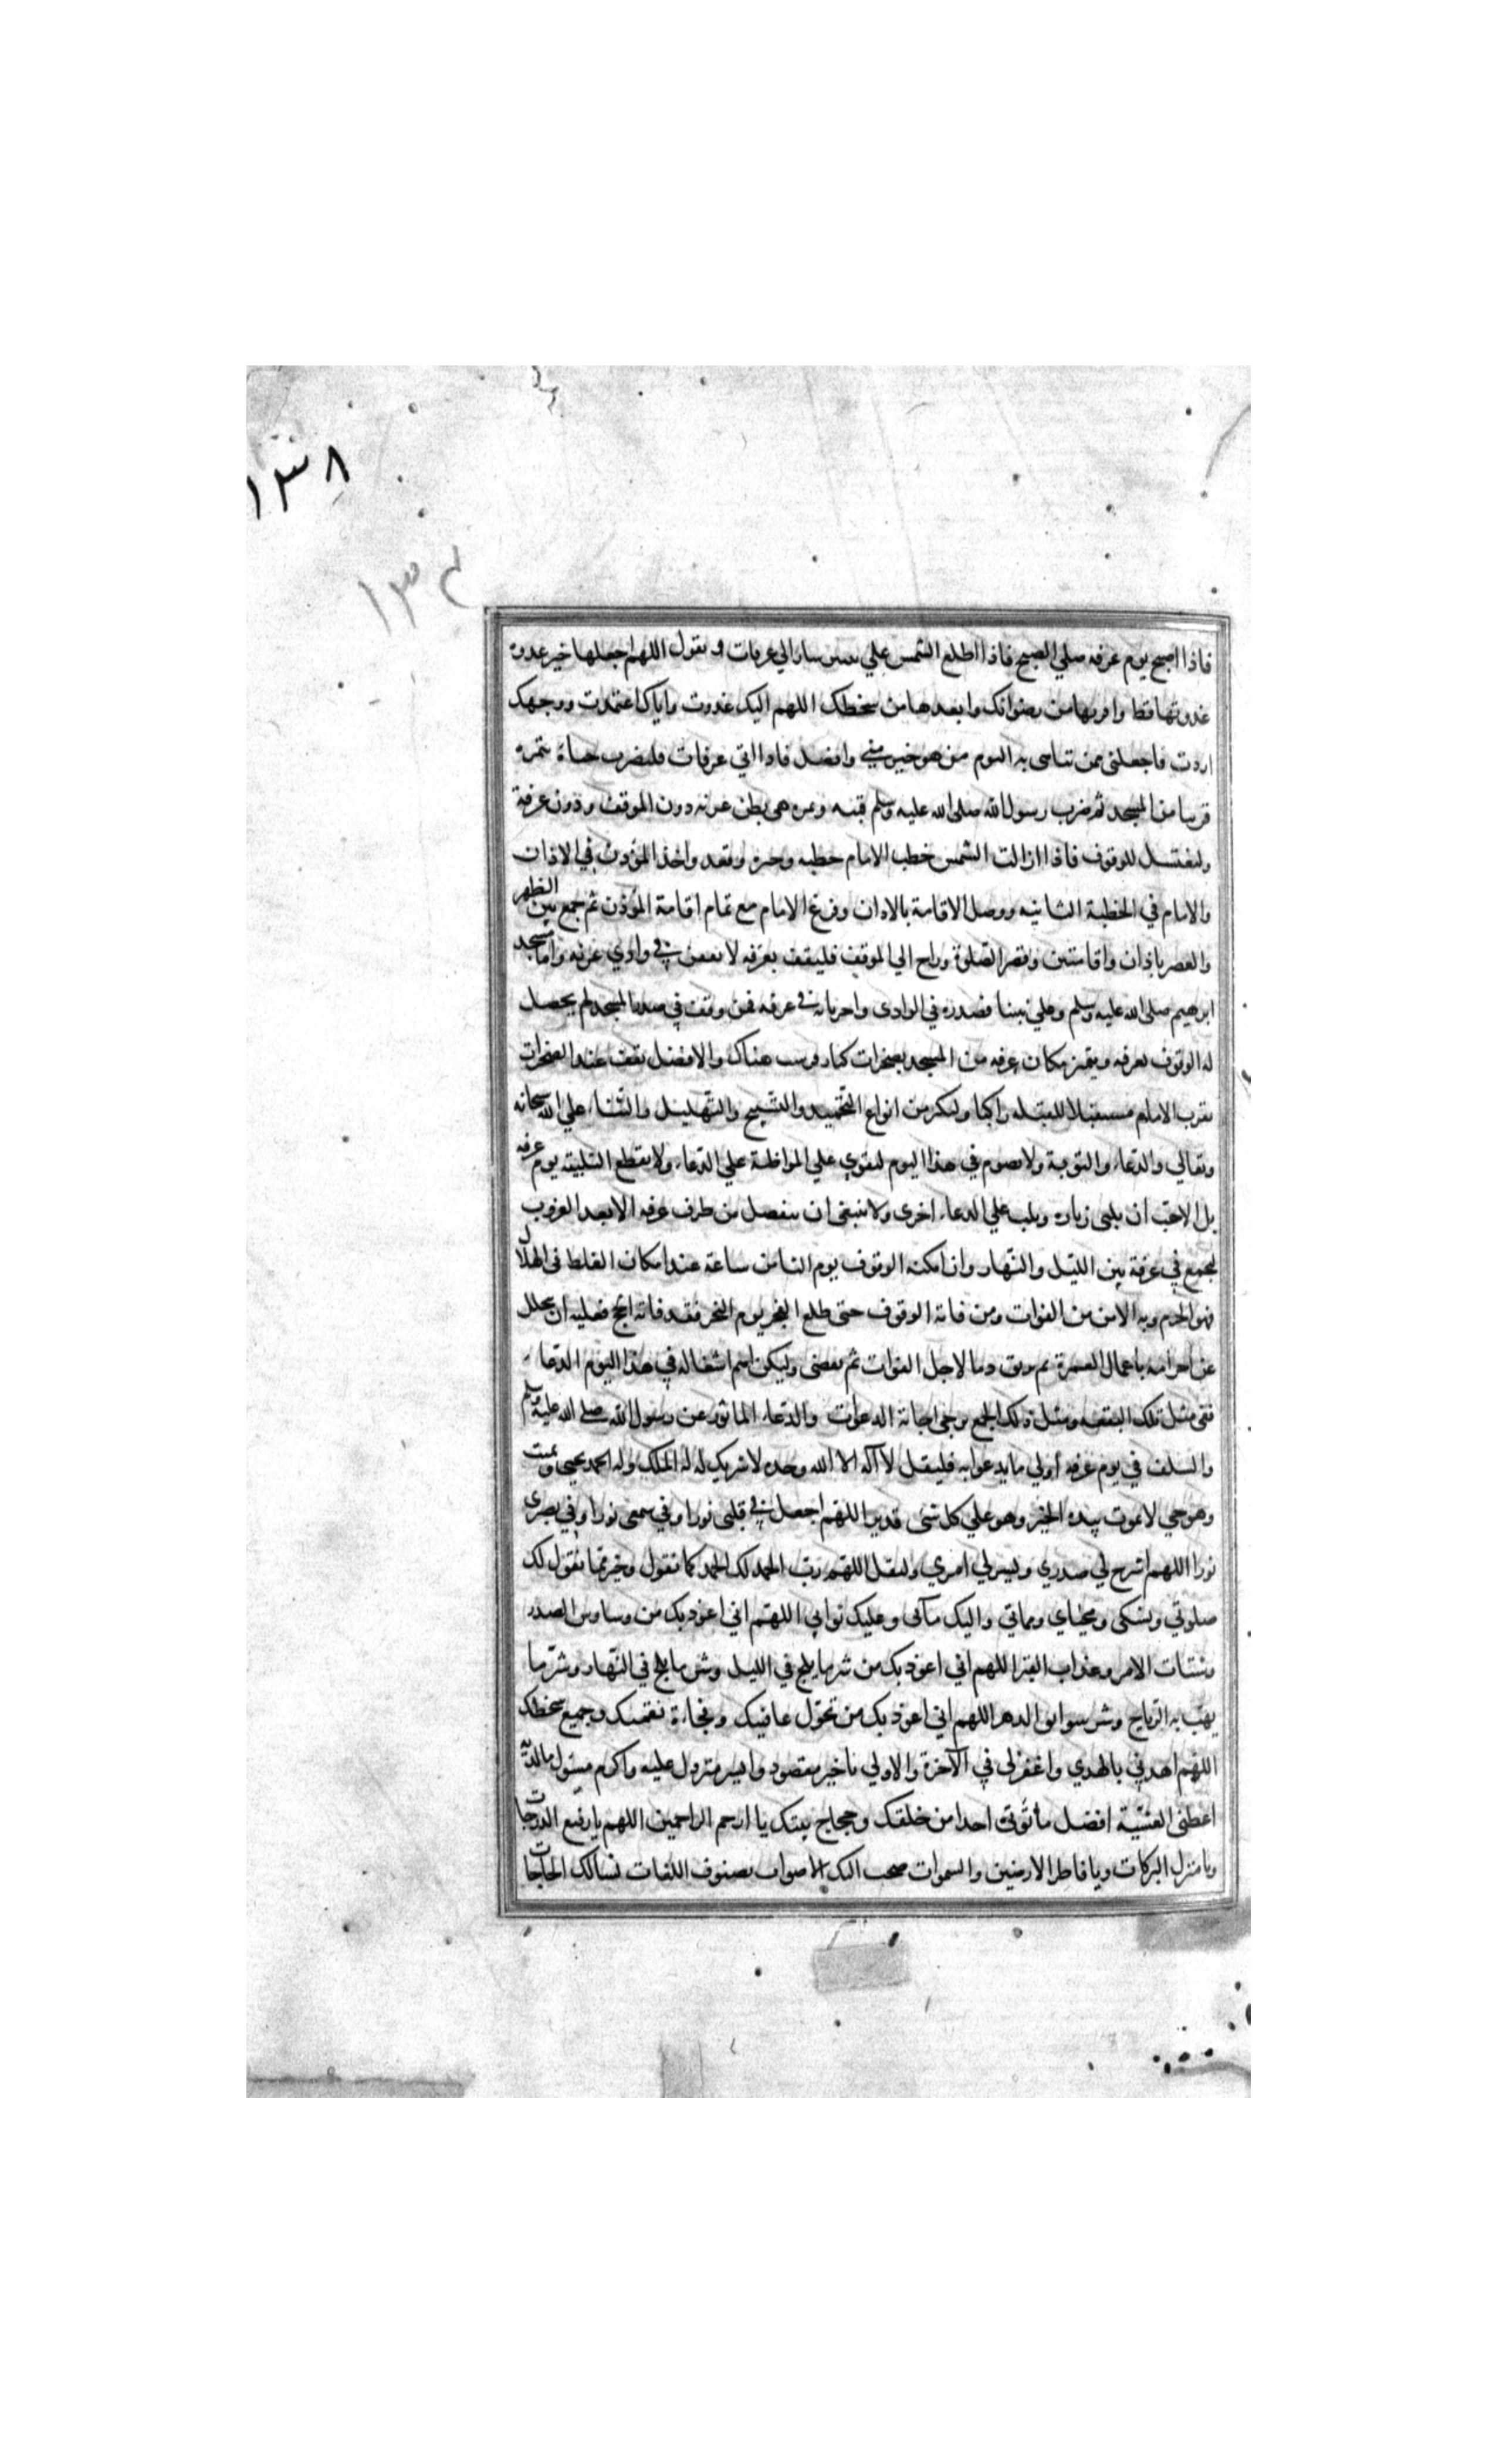 ١٣٨
١٣٤
فاذا اصبح يوم عرفه صلي الصبح فاذا اطلع الشمس علي ثبير سار الي عرفات و يقول اللهم اجعلها خير غدوة
غدوتها قط واقربها من رضوانك وابعدها من سخطك اللهم اليك غدوت واياك اعتمدت ووجهك
اردت فاجعلنى ممن تباهى به اليوم من هو خير مني وافضل فاذا اتي عرفات فليضرب خباه بنمرة
قريبا من المسجد ثم ضرب رسول الله صلى الله عليه وسلم قبته ونمره هى بطن عرنه دون الموقف ودون عرفة
وليغتسل للوقوف فاذا ازالت الشمس خطب الامام خطبه وجيزه وقعد واخذ المؤذن في الاذان
والامام في الخطبة الثانيه ووصل الاقامة بالاذان وفرغ الامام مع تمام اقامة المؤذن ثم جمع بين الظهر
والعصر باذان واقامتين وقصر الصلوة وراح الي الموقف فليقف بعرفه لا يقفن في وادي عرنه واما مسجد
ابرهيم صلى الله عليه وسلم وعلي نبينا فصدره في الوادى واخرياته في عرفه فمن وقف في صدر المسجد لم يحصل
له الوقوف بعرفه ويتميز مكان عرفه من المسجد بصخرات كبار فرشت هناك والافضل يقف عند الصخرات
بقرب الامام مستقبلا للقبله راكبا وليكثر من انواع التحميد والتسبيح والتهليل والثناء علي الله سبحانه
وتعالي والدعاء والتوبة ولا يصوم في هذا اليوم ليقوي علي المواظبة علي الدعاء ولا يقطع التلبيه يوم عرفه
بل الاحب ان يلبى تارة ويكب علي الدعاء اخرى ولا ينبغى ان ينفصل من طرف عرفه الا بعد الغروب
ليجمع في عرفة بين الليل والنهار وان امكنه الوقوف يوم الثامن ساعة عند امكان الغلط فى الهلال
فهو الحزم وبه الامن من الفوات ومن فاته الوقوف حتى طلع الفجر يوم النحر فقد فاته الحج فعليه ان يحلل
عن احرامه باعمال العمرة ثم يريق دما لاجل الفوات ثم يقضى وليكن اهم اشغاله في هذا اليوم الدعاء
ففى مثل تلك البقعه ومثل ذلك الجمع يرجى اجابة الدعوات والدعاء الماثور عن رسول الله صلى الله عليه وسلم
والسلف في يوم عرفه أولي ما يدعوا به فليقل لا آله الا الله وحده لا شريك له له الملك وله الحمد يحيى ويميت
وهو حي لا يموت بيده الخير وهو علي كل شئ قدير اللهم اجعل في قلبى نورا وفي سمعى نورا وفي بصرى
نورا اللهم اشرح لي صدري ويسر لي امري وليقل اللهم رب الحمد لك الحمد كما تقول وخير مما نقول لك
صلوتي ونسكى ومحياي ومماتي واليك مآبى وعليك ثوابي اللهم اني اعوذ بك من وساوس الصدر
وشتات الامر وعذاب القبر اللهم اني اعوذ بك من شر ما يلج في الليل وشر ما يلج في النهار وشر ما
يهب به الرياح وشر بوائق الدهر اللهم اني اعوذ بك من تحول عافيتك وفجاءة نقمتك وجميع سخطك
اللهم اهدني بالهدي واغفر لى في الآخرة والاولي يا خير مقصود وايسر منزول عليه واكرم مسئول ما لديه
اعطنى العشية افضل ما تؤتى احدا من خلقك وحجاج بيتك يا ارحم الراحمين اللهم يا رفيع الدرجات
ويا منزل البركات ويا فاطر الارضين والسموات ضجت اليك الاصوات بصنوف اللغات نسالك الحاجات